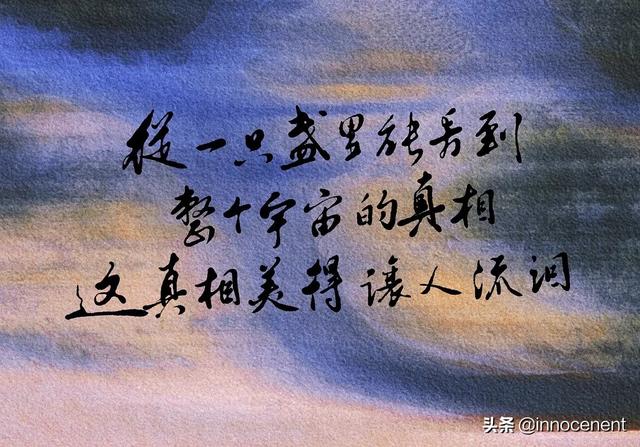 從一只盏里能看到
整个宇宙的真相
这真相美得讓人流泪
头条 @innocenent